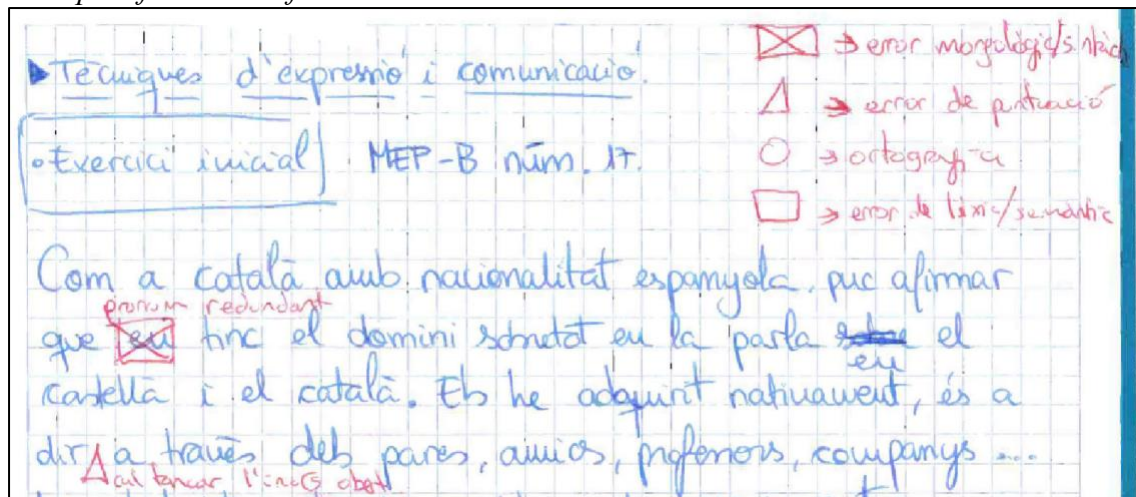 Tècniques d'expressió i comunicació.
Exercici inicial MEP-B núm. 17.
→ error morfològic/sintàctic
→ error de puntuació
→ ortografia
→ error de lèxic/semàntic
Com a català amb nacionalitat espanyola, puc afirmar
pronom redundant
que en tinc el domini sobretot en la parla el
en
castellà i el català. Els he adquirit nativament, és a
dir a través dels pares, amics, professors, companys ...
cal tancar l'incís obert